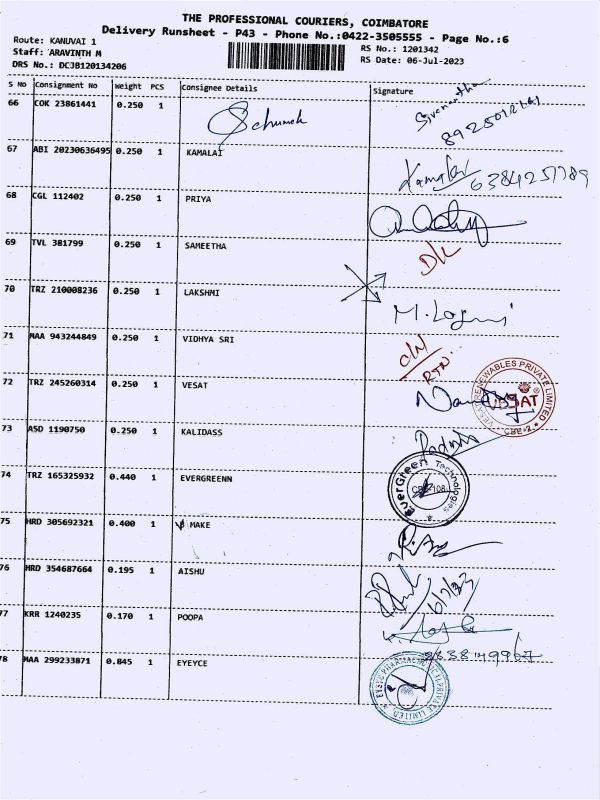 THE PROFESSIONAL COURIERS, COIMBATORE
Delivery Runsheet - P43 - Phone No.:0422-3505555 - Page No.:6
Route: KANUVAI 1
RS No.: 1201342
Staff: ARAVINTH M
RS Date: 06-Jul-2023
DRS No.: DCJB120134206
S No Consignment No Weight PCS Consignee Details Signature
66 COK 23861441 0.250 1
67 ABI 20230636495 0.250 1 KAMALAI
68 CGL 112402 0.250 1 PRIYA
69 TVL 381799 0.250 1 SAMEETHA
D/L
70 TRZ 210008236 0.250 1 LAKSHMI
71 MAA 943244849 0.250 1 VIDHYA SRI
C/N
RTN
72 TRZ 245260314 0.250 1 VESAT
VESAT RENEWABLES PRIVATE LIMITED
VESAT
73 ASD 1190750 0.250 1 KALIDASS
74 TRZ 165325932 0.440 1 EVERGREENN
EverGreen Technologies
75 HRD 305692321 0.400 1 MAKE
76 HRD 354687664 0.195 1 AISHU
6/7/23
77 KRR 1240235 0.170 1 POOPA
78 MAA 299233871 0.845 1 EYEYCE
PRIVATE LIMITED